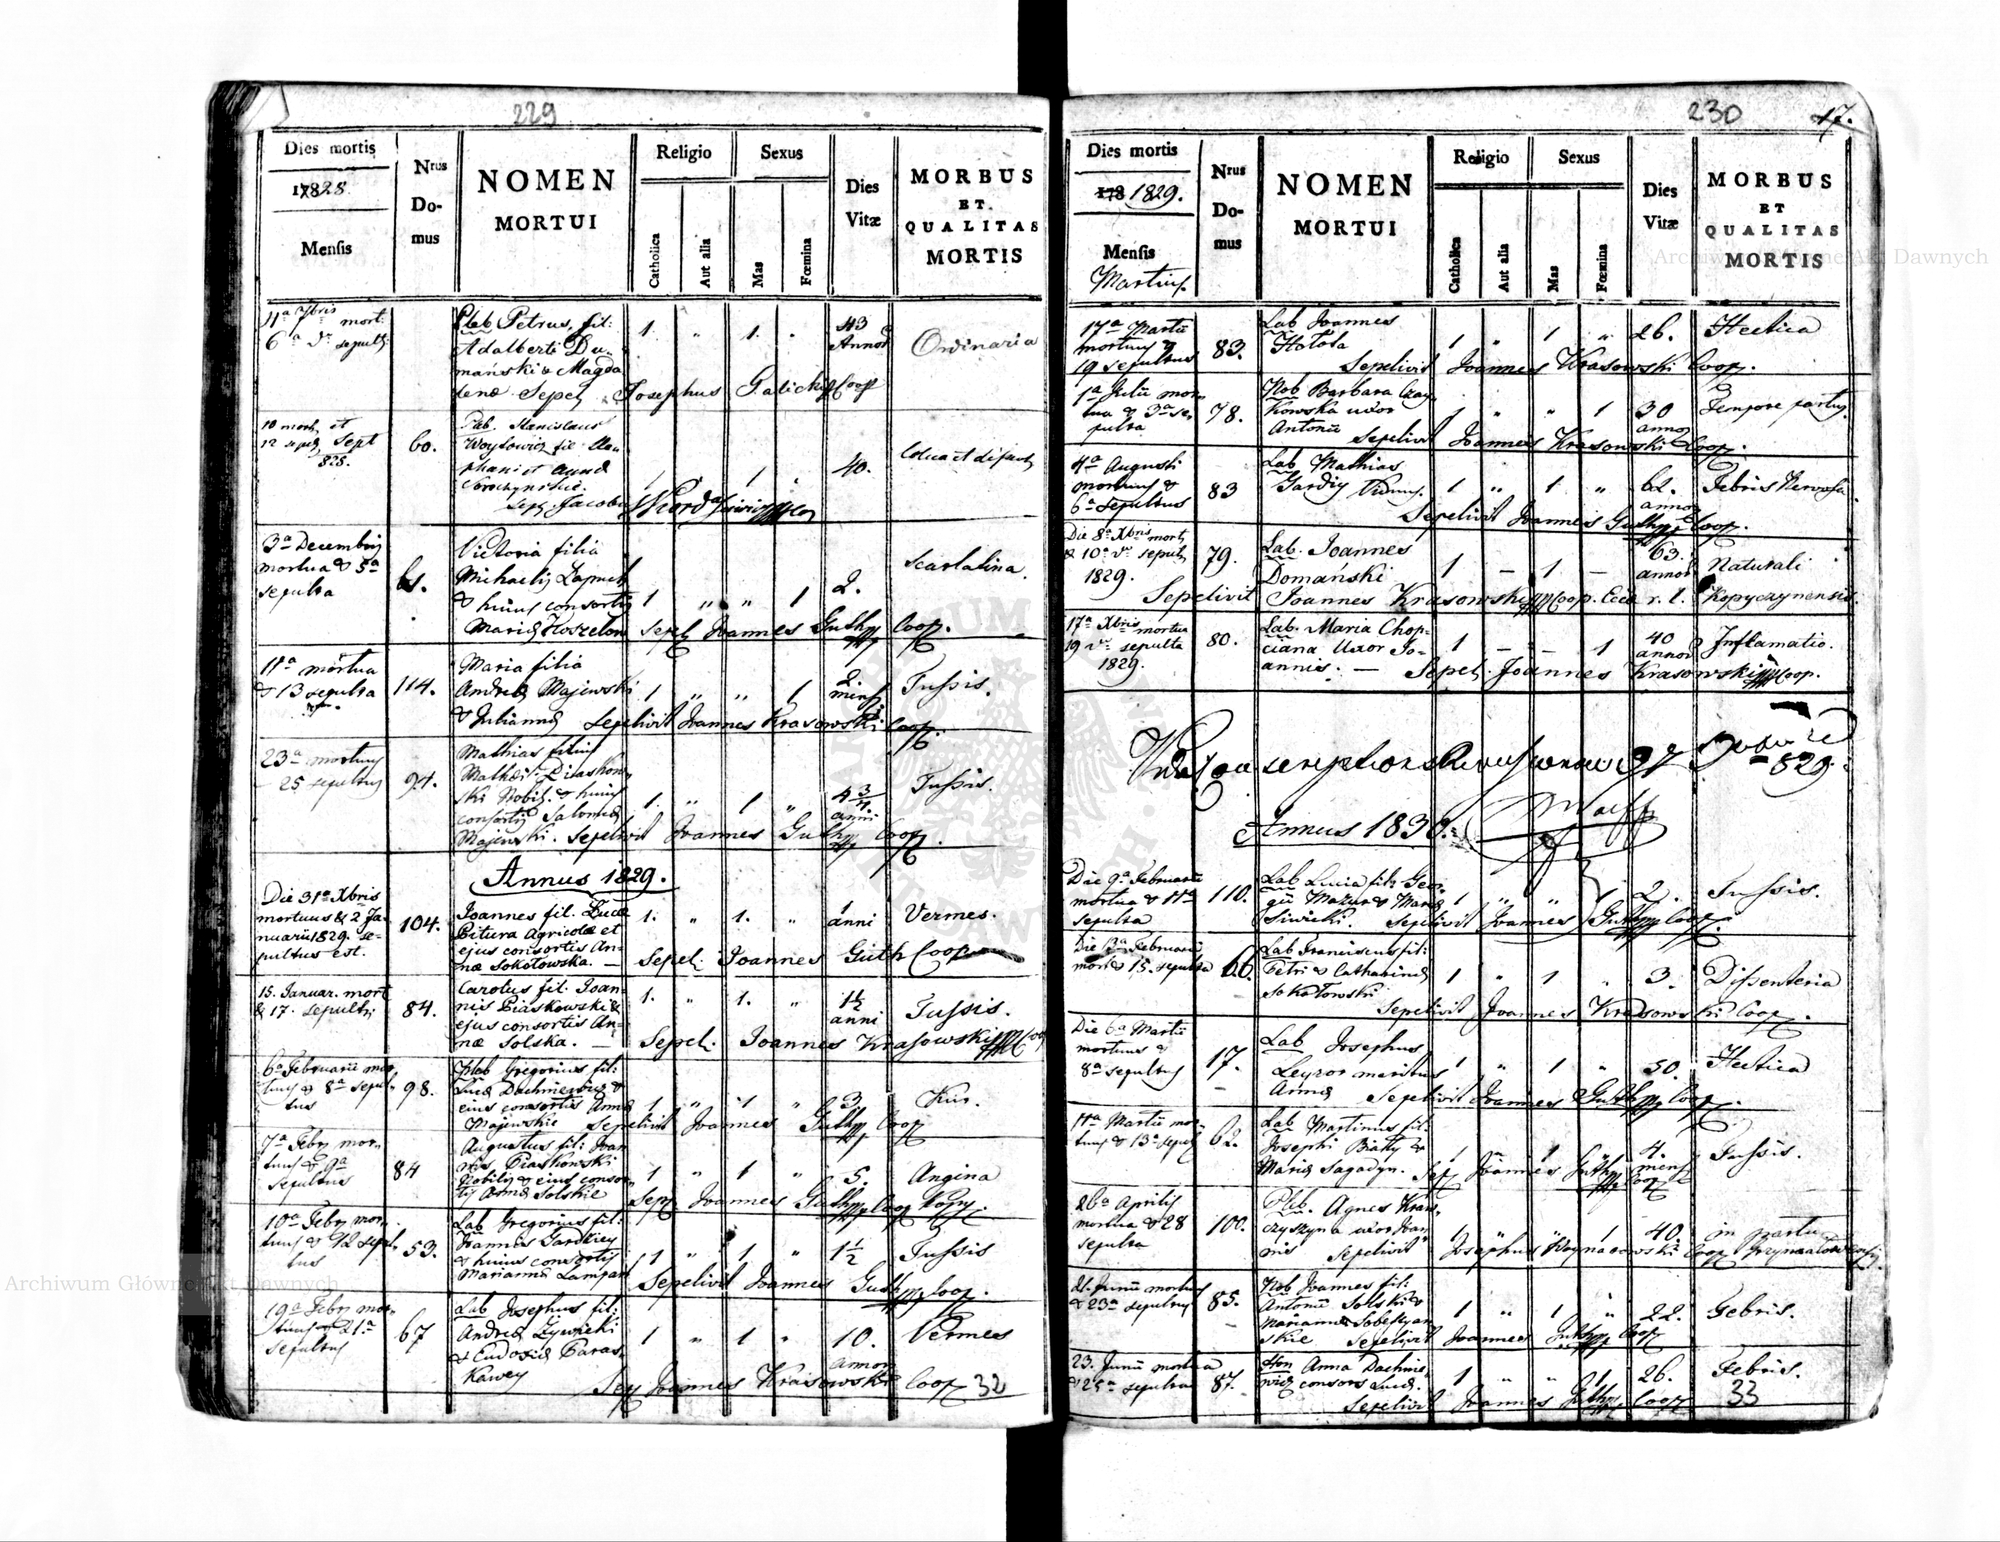 229
Dies mortis
1828
Mensis
Nrus
Do-
mus
NOMEN
MORTUI
Religio
Catholica
Aut alia
Sexus
Mas
Fœmina
Dies
Vitæ
MORBUS
ET
QUALITAS
MORTIS
11a 7bris mort:
6a sepult
Pleb Petrus, fil:
Adalberti Du-
mański & Magda
lenæ Sepel Josephus Galicki Coop
1. " 1. "
43
Annor
Ordinaria
10 mort et
12 sepul Sept
828.
60.
Stanislaus
et Annæ
Sep. Jacobus
1 1
40.
3a Decembris
mortua & 5a
sepulta
Victoria filia
Michaelis
& hujus consortis
Mariæ Koszelow sepel Joannes Guth Coop.
1 " " 1 2.
Scarlatina.
11a mortua
& 13 sepulta
114.
Maria filia
Andreæ Majewski
& Juliannæ Sepelivit Joannes Krasowski Coop.
1 " " 1
2.
mens
Tussis.
23a mortuus
25 sepultus
94.
Mathias filius
Mathei Piaskow-
ski Nobil. & hujus
consortis Salomeæ
Majewski. Sepelivit Joannes Guth Coop.
1. " 1 "
4 3/4
anni
Tussis.
Annus 1829.
Die 31a Xbris
mortuus & 2 Ja-
nuarii 1829. se-
pultus est.
104.
Joannes fil. Lucæ
Pitura Agricolæ et
ejus consortis An-
næ Sokołowska. —
1. " 1. "
1
anni
Vermes.
Sepel. Joannes Guth Coop
15. Januar. mort
& 17. sepult:
84.
Carolus fil. Joan-
nis Piaskowski &
ejus consortis An-
næ Solska. —
1. " 1. "
1½
anni
Tussis.
Sepel. Joannes Krasowski Coop
6a Februarii mor-
tuus & 8a sepul-
tus
98.
Pleb Gregorius fil:
Lucæ &
ejus consortis Annæ
Majewskie Sepelivit Joannes Guth Coop
1 " 1 " 3.
7a Febr mor-
tuus & 9a
sepultus
84
Augustus fil: Joan
nis Piaskowski
Nobilis & ejus consor-
tis Annæ Solskie Sep Joannes Guth Coop Kopy.
1 " 1 " 5.
Angina
10a Febr mor-
tuus & 12 sepul-
tus
53.
Lab Gregorius fil:
Joannes Gardziey
& hujus consortis
Mariannæ Lampart Sepelivit Joannes Guth Coop.
1 " 1 " 1½
Tussis
19a Febr mor-
tuus & 21a
sepultus
67
Lab Josephus fil:
Andreæ Żywicki
& Eudoxiæ Paras-
kawey
1 " 1 "
10.
annor
Vermes
Sep Joannes Krasowski Coop
32
230
17.
Dies mortis
178 1829.
Mensis
Martius.
Nrus
Do-
mus
NOMEN
MORTUI
Religio
Catholica
Aut alia
Sexus
Mas
Fœmina
Dies
Vitæ
MORBUS
ET
QUALITAS
MORTIS
17a Martii
mortuus &
19 sepultus
83.
Lab Joannes
Hotota
1 " 1 " 26.
Hectica
Sepelivit Joannes Krasowski Coop.
1a Julii mor-
tua & 3a se-
pulta
78.
Nob Barbara Czay-
kowska uxor
Antonii
1 " " 1 30
anno
Tempore partus.
Sepelivit Joannes Krasowski Coop.
4a Augusti
mortuus &
6a sepultus
83
Lab Mathias
Gardzy Viduus.
1 " 1 " 62.
annor
Febris Nervosa
Sepelivit Joannes Guth Coop.
Die 8a Xbris mort.
& 10a sepult
1829.
79.
Lab. Joannes
Domański
1 — 1 —
63.
annor
Naturali
Sepelivit Joannes Krasowski Coop. Eccæ r. l. Kopyczynensis.
17a Xbris mortua
19 sepulta
1829.
80.
Lab. Maria Chop-
ciana Uxor Jo-
annis. —
1 — — 1
40
annor
Inflamatio.
Sepel. Joannes Krasowski Coop.
829
Annus 1830.
Die 9a Februarii
mortua & 11a
sepulta
110.
Lab Lucia fil: Geor-
gii Mazur & Mariæ
Siwicki. Sepelivit Joannes Guth Coop.
1 " " 1 2.
Tussis.
Die 13a Februarii
mort & 15. sepulta
66.
Lab Franciscus fil:
Petri & Catharinæ
Sokołowski
1 " 1 " 3.
Dissenteria
Sepelivit Joannes Krasowski Coop.
Die 6a Martii
mortuus &
8a sepultus
17.
Lab Josephus
Leyzor maritus
Annæ
1 " 1 " 50.
Hectica
Sepelivit Joannes Guth Coop.
11a Martii mor-
tuus & 13a sepul
62.
Lab Martinus fil:
Josephi Biały &
Mariæ Sagadyn. Sep Joannes Guth Coop
1 " 1 "
4.
mens
Tussis.
26a Aprilis
mortua & 28
sepulta
100.
Pleb. Agnes Kraw-
czyszyna uxor Joan
nis
1 " " 1 40.
in partu
Sepelivit Josephus Woynarowski Coop
21. Junii mortuus
& 23a sepultus
85.
Nob Joannes fil:
Antonii Solski &
Mariannæ Sobestyan
skie Sepelivit Joannes Guth Coop
1 " 1 " 22.
Febris.
23. Junii mortua
& 25a sepulta
87.
Hon Anna Dachnie-
wicz consors Lucæ.
1 " " 1 26.
Febris.
Sepelivit Joannes Guth Coop
33
Archiwum Główne Akt Dawnych
Archiwum Główne Akt Dawnych